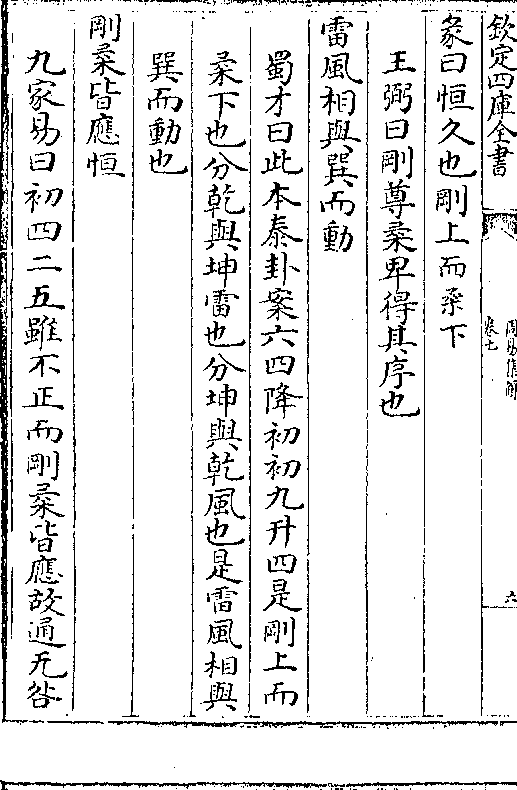 欽定四庫全書
周易集解
卷七
六
彖曰恒久也剛上而柔下
王弼曰剛尊柔卑得其序也
雷風相與巽而動
蜀才曰此本泰卦案六四降初初九升四是剛上而
柔下也分乾與坤雷也分坤與乾風也是雷風相與
巽而動也
剛柔皆應恒
九家易曰初四二五雖不正而剛柔皆應故通无咎